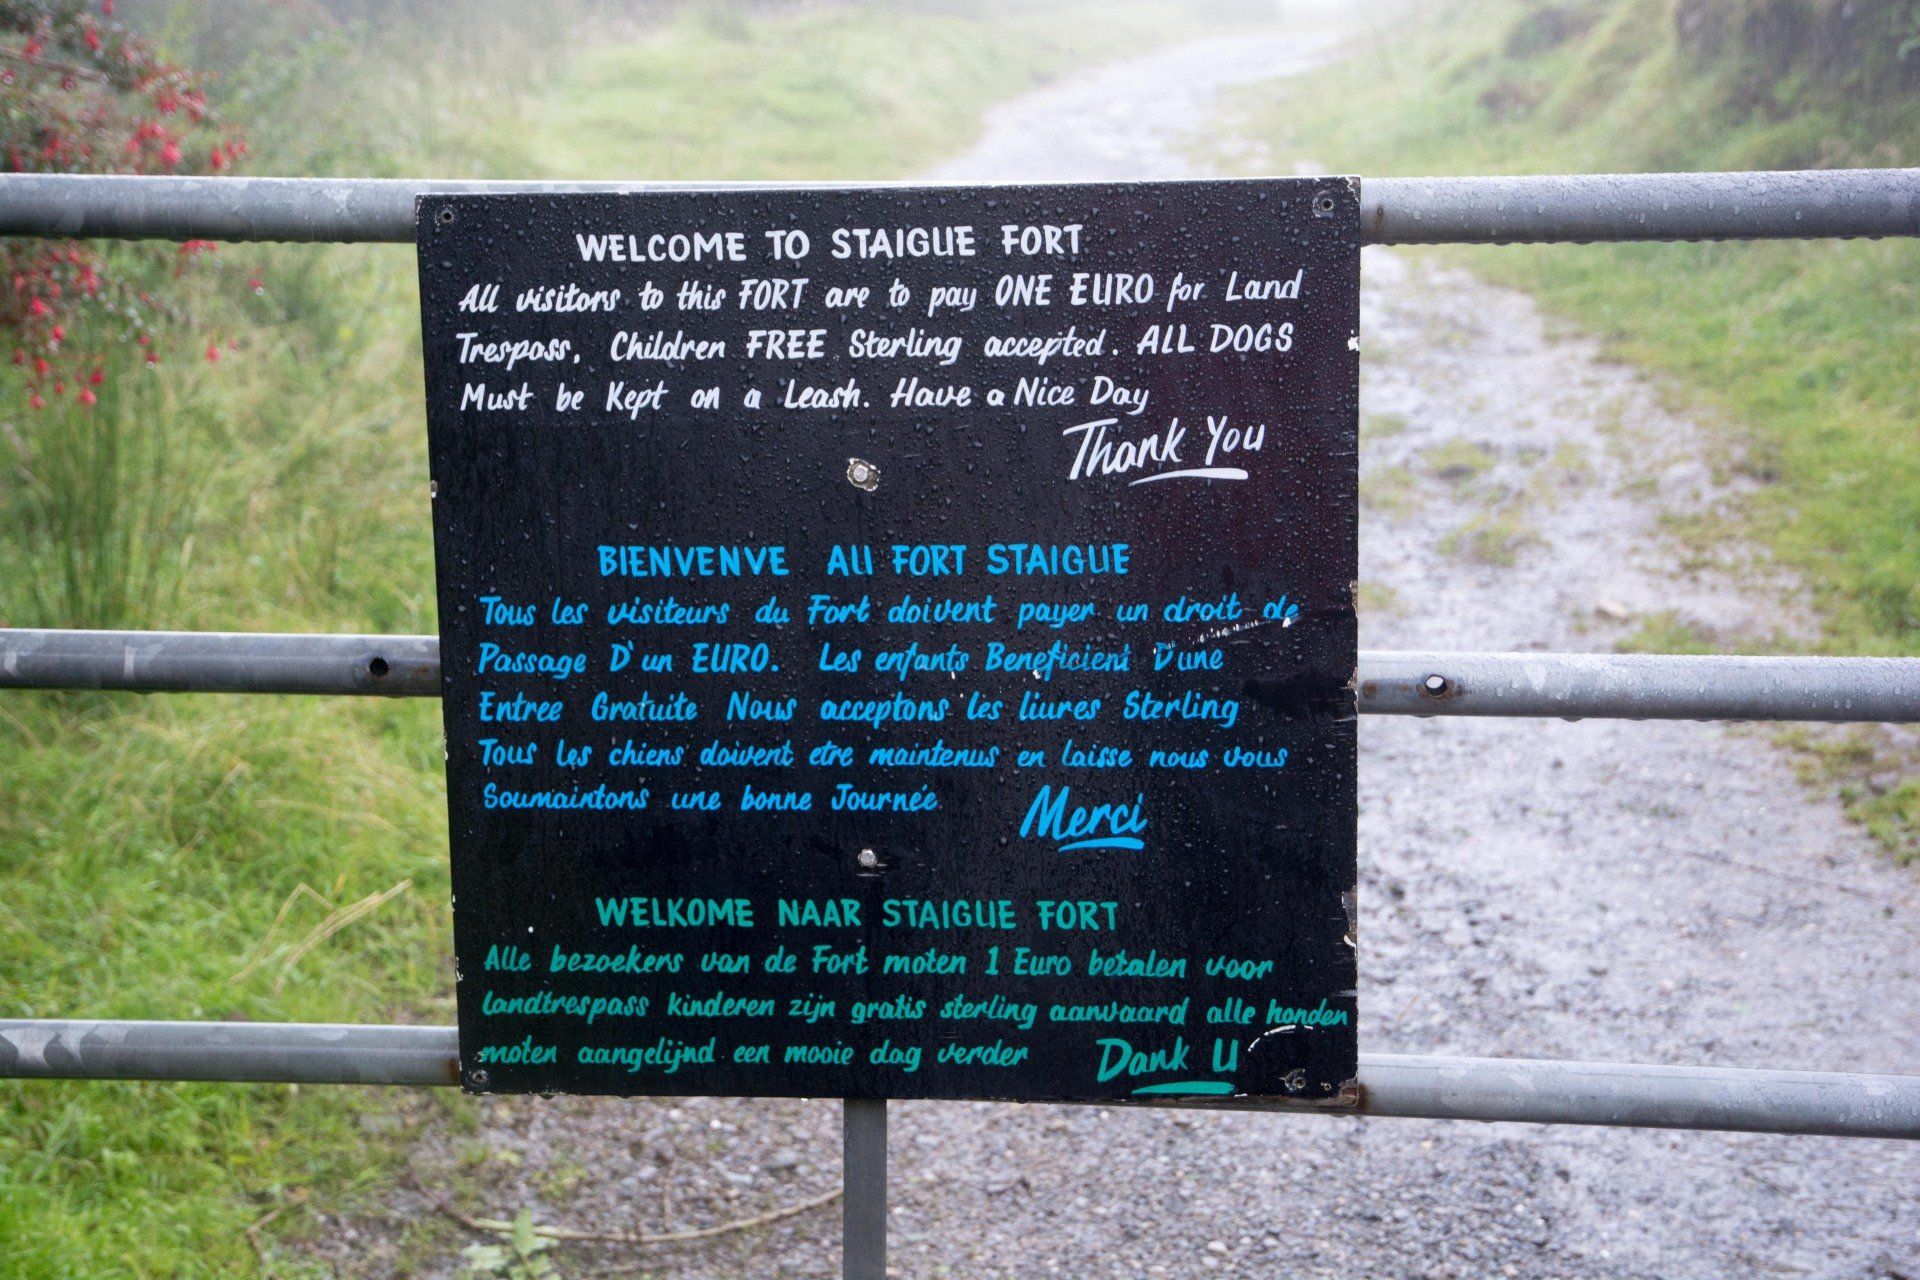 WELCOME TO STAIGUE FORT
All visitors to this FORT are to pay ONE EURO for Land
Trespass. Children FREE Sterling accepted. ALL DOGS
Must be Kept on a Leash. Have a Nice Day
Thank You
BIENVENVE AU FORT STAIGUE
Tous les visiteurs du Fort doivent payer un droit de
Passage D'un EURO. Les enfants Beneficient D'une
Entree Gratuite Nous acceptons les livres Sterling
Tous les chiens doivent etre maintenus en laisse nous vous
Soumaintons une bonne Journée
Merci
WELKOME NAAR STAIGUE FORT
Alle bezoekers van de Fort moten 1 Euro betalen voor
landtrespass kinderen zijn gratis sterling aanvaard alle honden
moten aangelijnd een mooie dag verder
Dank U